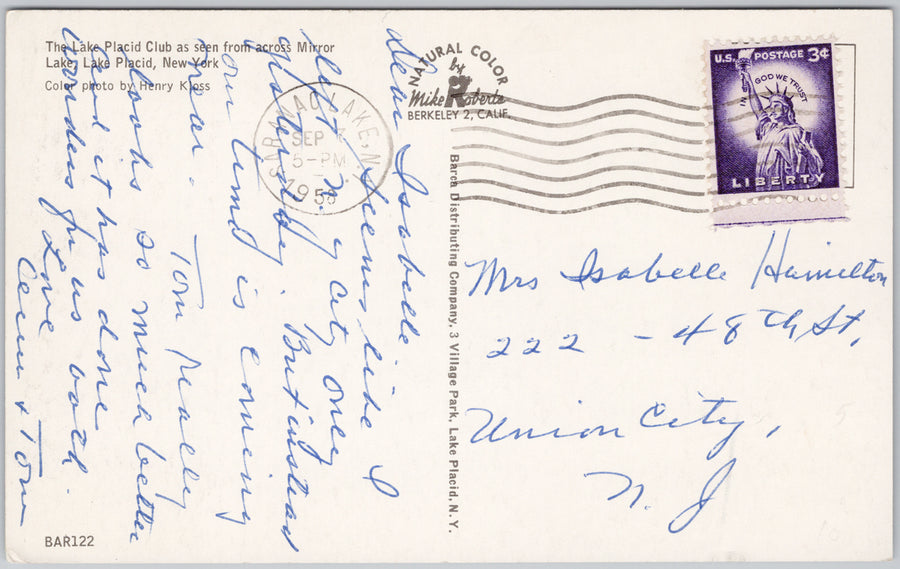 The Lake Placid Club as seen from across Mirror
Lake, Lake Placid, New York
Color photo by Henry Kloss
NATURAL COLOR
by
Mike Roberts
BERKELEY 2, CALIF.
SARANAC LAKE, N.Y.
SEP 7
5-PM
195
U.S. POSTAGE 3¢
IN GOD WE TRUST
LIBERTY
Dear Isabelle
Seems like I
left N. Y city only
yesterday. But instead
our time is coming
near. Tom really
looks so much better
and it has done
wonders for us both.
Love
+ Tom
Barea Distributing Company, 3 Village Park, Lake Placid, N.Y.
Mrs Isabelle Hamilton
222 - 48th St.
Union City,
N. J
BAR122